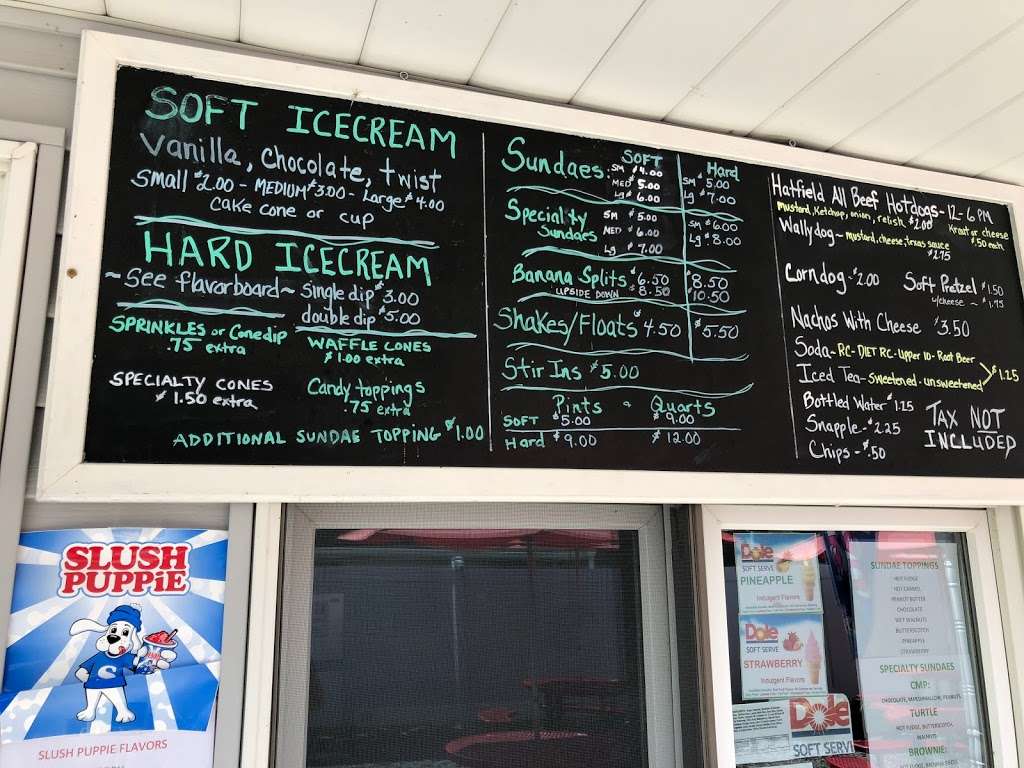 SOFT ICECREAM
Vanilla, Chocolate, twist
Small $2.00 - MEDIUM $3.00 - Large $4.00
Cake cone or cup
HARD ICECREAM
~ See flavorboard ~ Single dip $3.00
double dip $5.00
SPRINKLES or Conedip
.75 extra
WAFFLE CONES
$1.00 extra
SPECIALTY CONES
$1.50 extra
Candy toppings
.75 extra
ADDITIONAL SUNDAE TOPPING $1.00
SOFT Hard
Sundaes SM $4.00 SM $5.00
MED $5.00
Lg $6.00 Lg $7.00
Specialty Sundaes SM $5.00 SM $6.00
MED $6.00 Lg $8.00
Lg $7.00
Banana Splits $6.50 $8.50
UPSIDE DOWN $8.50 $10.50
Shakes/Floats $4.50 $5.50
Stir Ins $5.00
Pints & Quarts
SOFT $5.00 $9.00
Hard $9.00 $12.00
Hatfield All Beef Hotdogs - 12-6 PM
mustard, Ketchup, onion, relish $2.00 Kraut or cheese
$.50 each
Wallydog - mustard, cheese, texas sauce
$2.75
Corndog - $2.00 Soft Pretzel $1.50
w/cheese - $1.75
Nachos With Cheese $3.50
Soda - RC - DIET RC - Upper 10 - Root Beer
Iced Tea - Sweetened - unsweetened $1.25
Bottled Water $1.25
Snapple - $2.25
Chips - $.50
TAX NOT
INCLUDED
SLUSH
PUPPiE
S
SLUSH PUPPIE FLAVORS
Dole
SOFT SERVE
PINEAPPLE
Indulgent Flavors
Dole
SOFT SERVE
STRAWBERRY
Indulgent Flavors
Dole
SOFT SERV
SUNDAE TOPPINGS
HOT FUDGE
HOT CARAMEL
PEANUT BUTTER
CHOCOLATE
WET WALNUTS
BUTTERSCOTCH
PINEAPPLE
STRAWBERRY
SPECIALTY SUNDAES
CMP:
CHOCOLATE, MARSHMALLOW, PEANUTS
TURTLE
HOT FUDGE, BUTTERSCOTCH,
WALNUTS
BROWNIE: